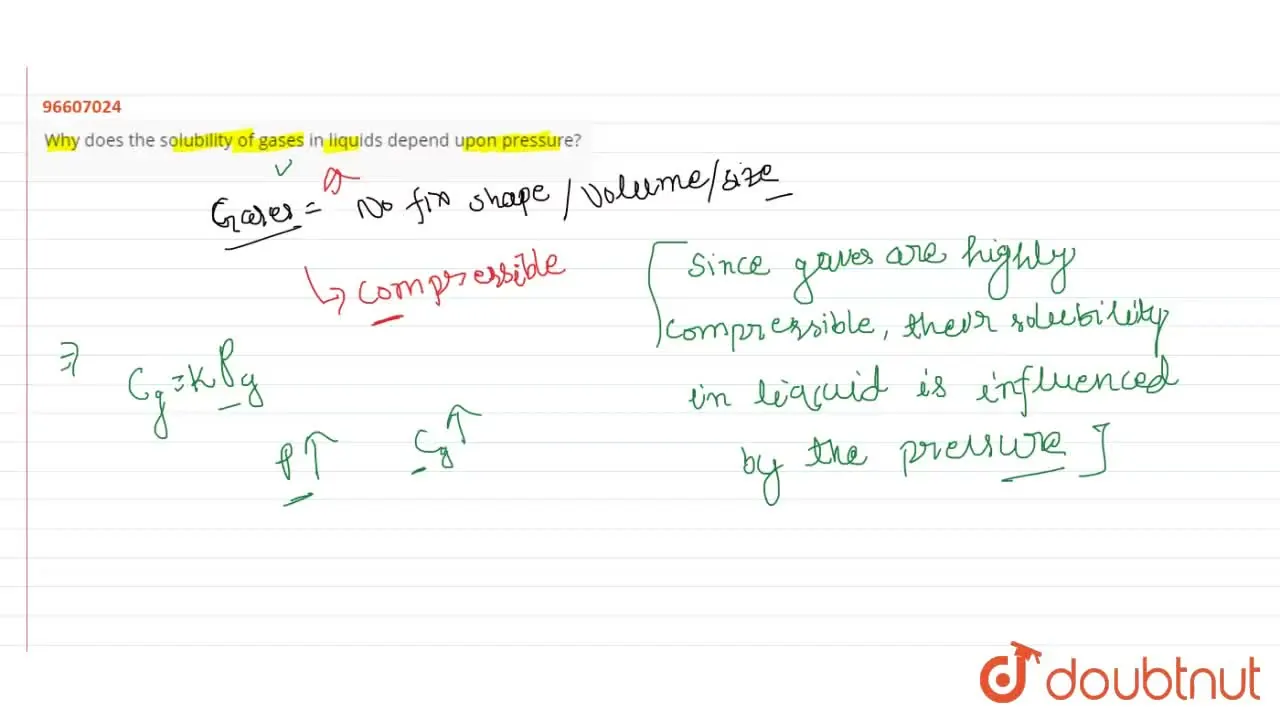 96607024
Why does the solubility of gases in liquids depend upon pressure?
Gases = No fix shape / Volume / size
↳ compressible
[ Since gases are highly
compressible, their solubility
in liquid is influenced
by the pressure ]
⇒ Cg = K Pg
P↑ Cg↑
doubtnut